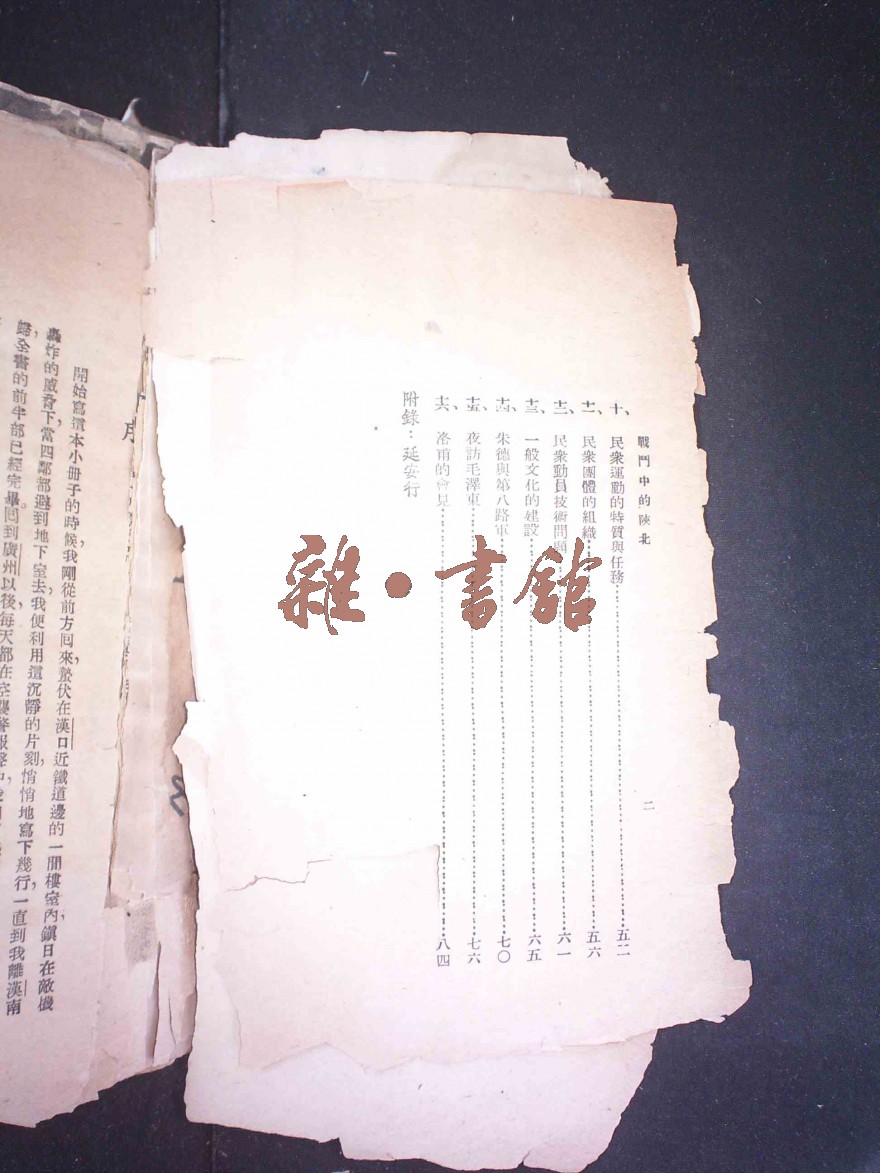 戰鬥中的陝北
二
十、民衆運動的特質與任務……五二
十一、民衆團體的組織……五六
十二、民衆動員技術問題……六一
十三、一般文化的建設……六五
十四、朱德與第八路軍……七〇
十五、夜訪毛澤東……七六
十六、洛甫的會見……八四
附錄：延安行
雜·書館
序
開始寫這本小册子的時候，我剛從前方囘來，蟄伏在漢口近鐵道邊的一間樓室內，鎭日在敵機
轟炸的威脅下，當四鄰都避到地下室去，我便利用這沉靜的片刻，悄悄地寫下幾行，一直到我離漢南
歸，全書的前半部已經完畢。囘到廣州以後，每天都在空襲警報聲中，